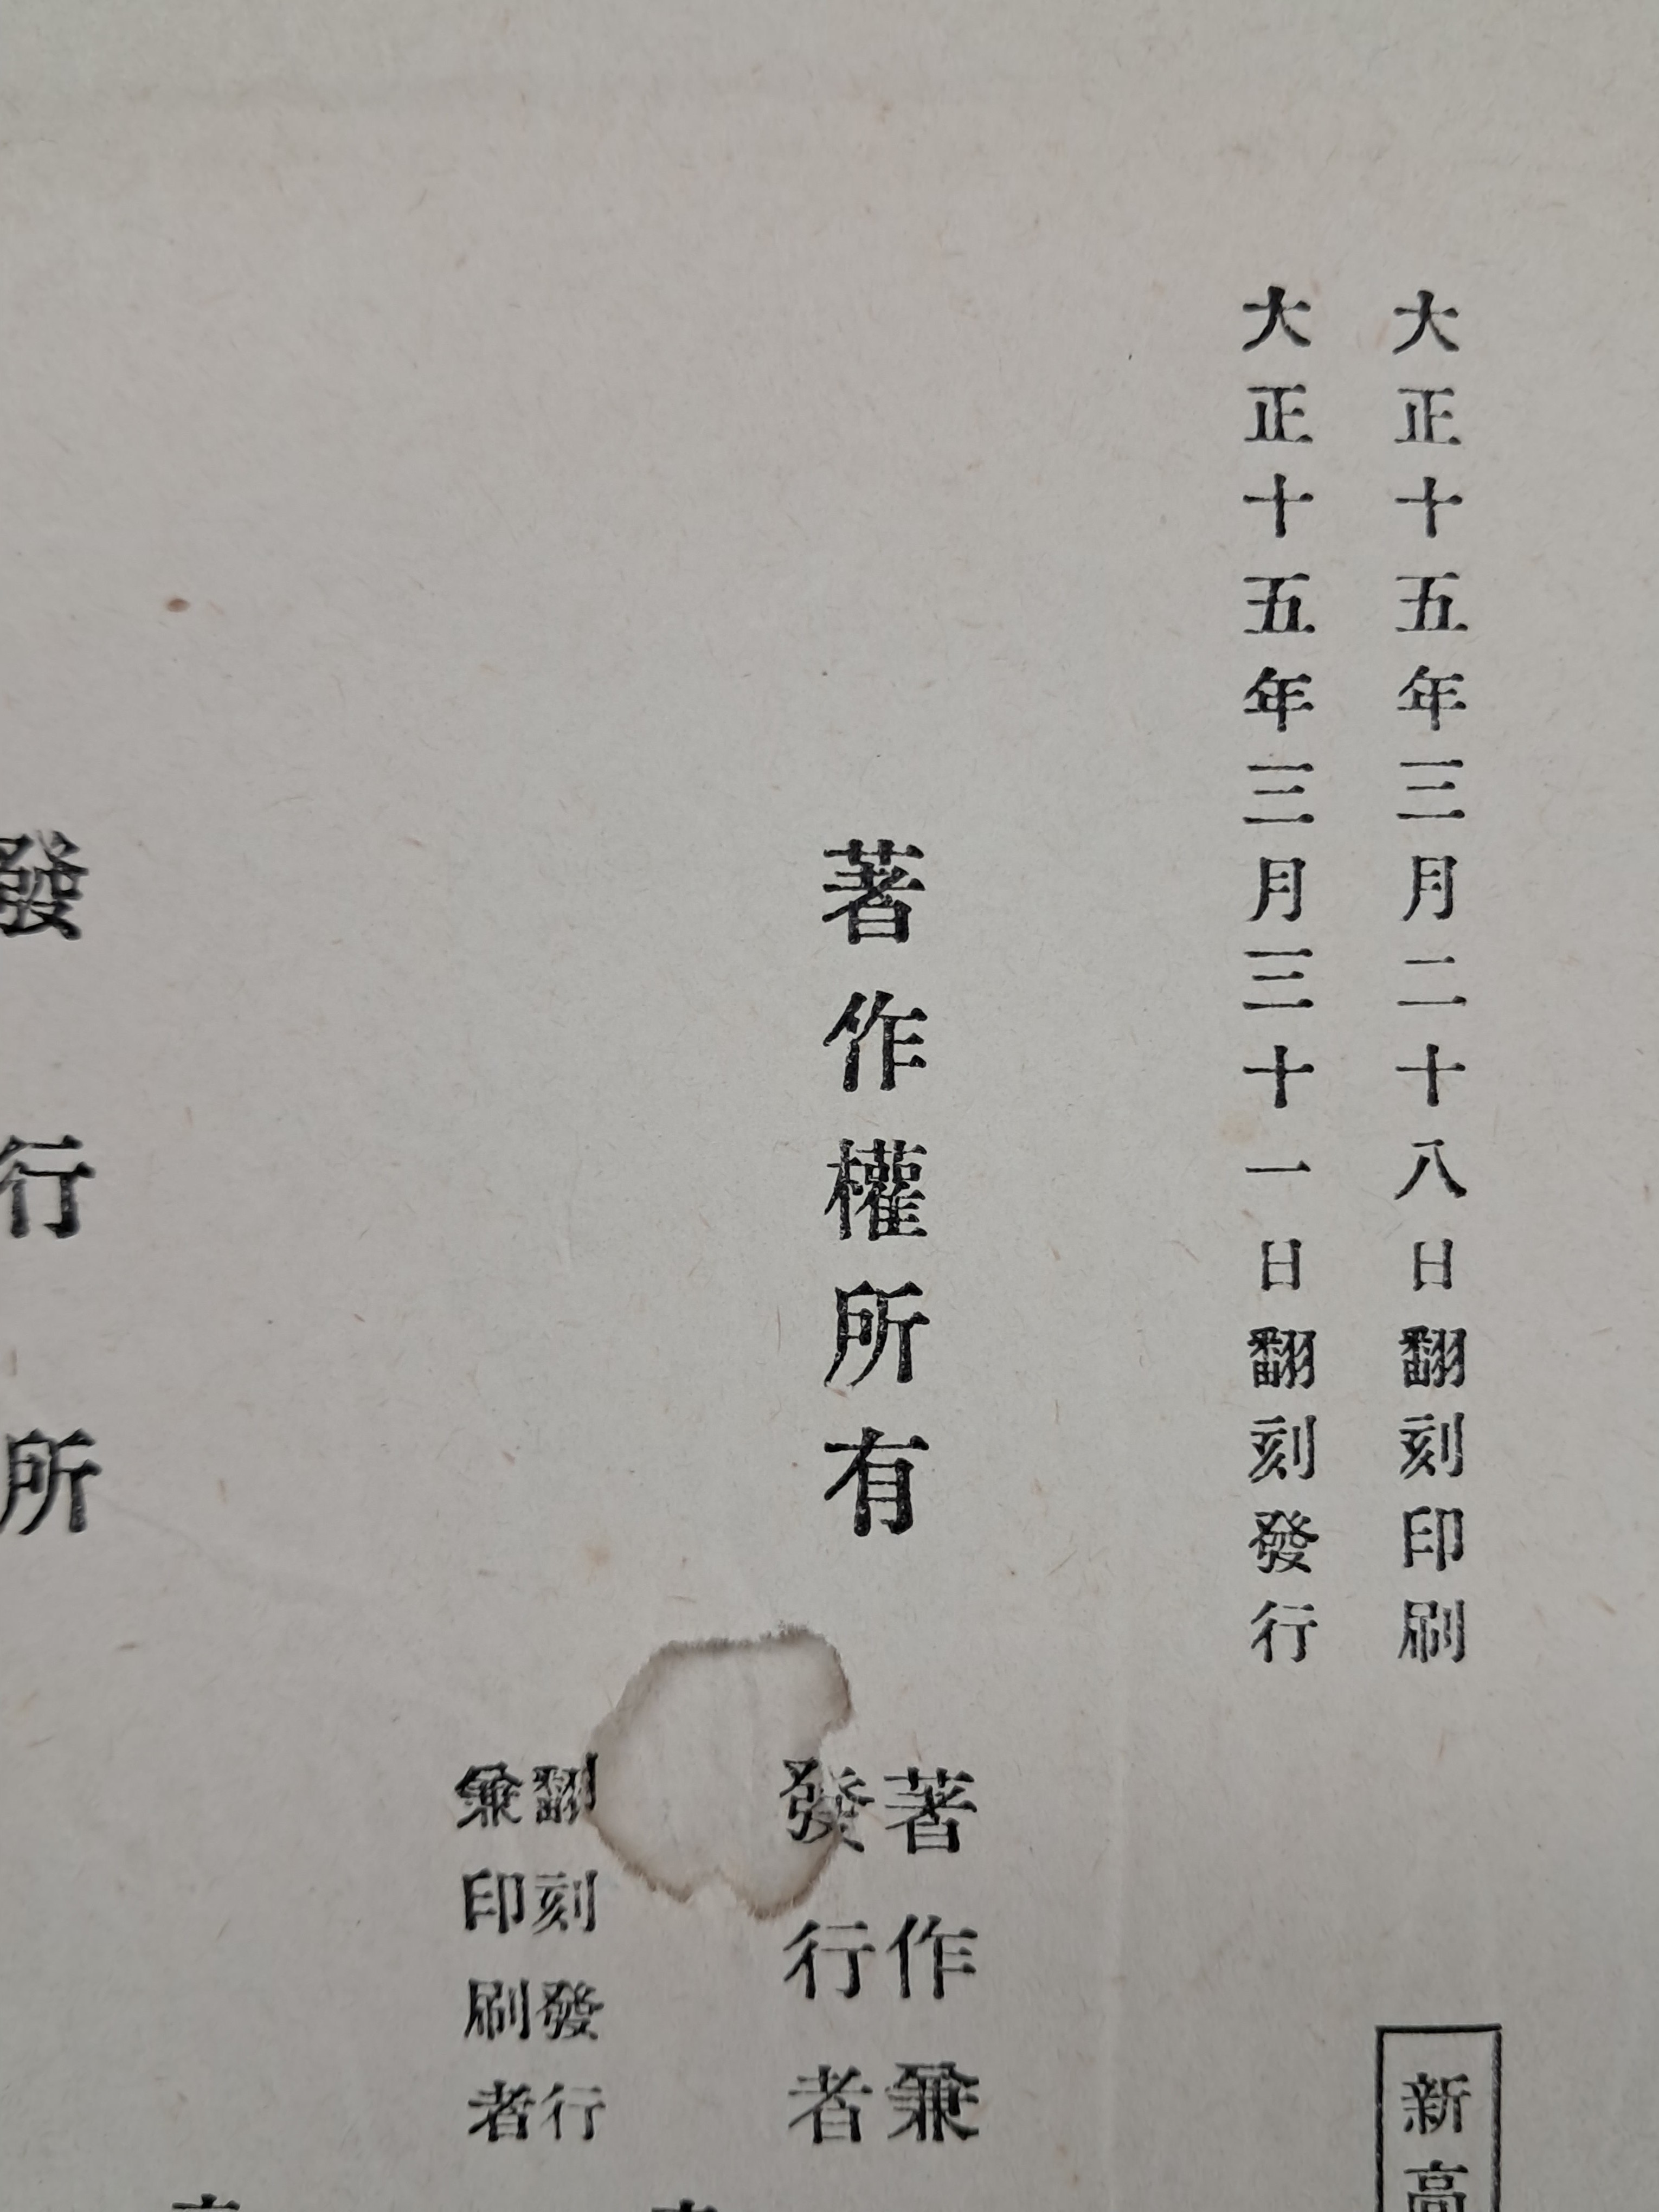 大正十五年三月二十八日翻刻印刷
大正十五年三月三十一日翻刻發行
新高
著作權所有
著作兼
發行者
翻刻發行
兼印刷者
發行所